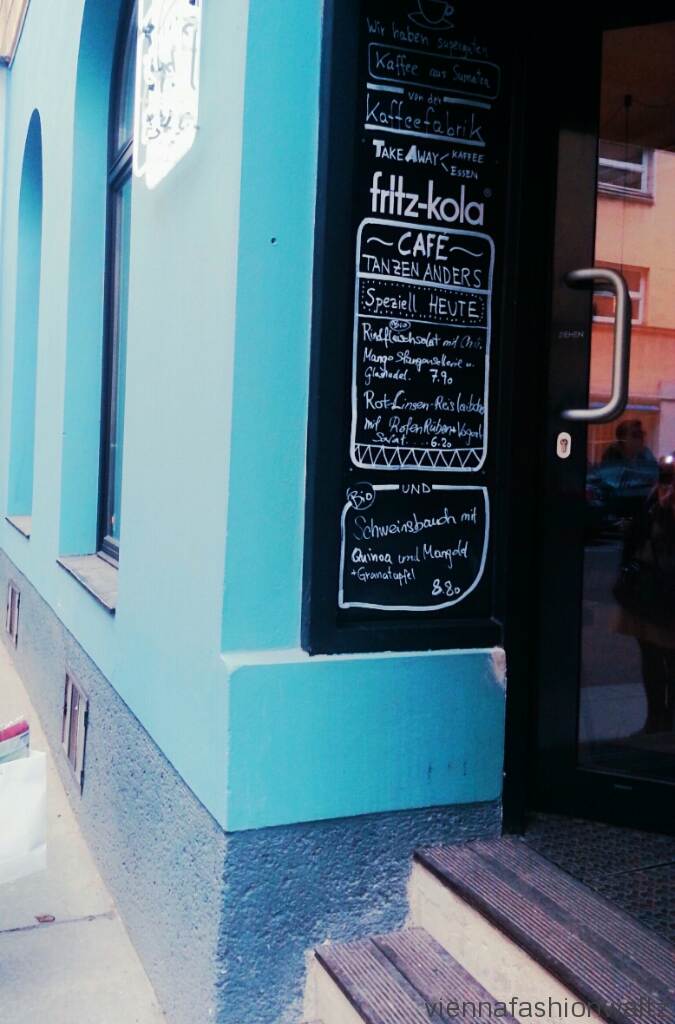 Wir haben superguten
Kaffee aus Sumatra
von der
Kaffeefabrik
TAKE AWAY < KAFFEE
ESSEN
fritz-kola®
~ CAFÉ ~
TANZEN ANDERS
Speziell HEUTE
Bio
Rindfleischsalat mit
Mango Stangensellerie u.
Glasnudel. 7.90
Rot-Linsen-Reislaibche
mit Roten Rüben +
Salat .... 6.20
UND
Bio
Schweinsbauch mit
Quinoa und Mangold
+ Granatapfel
8.80
ZIEHEN
viennafashionwaltz